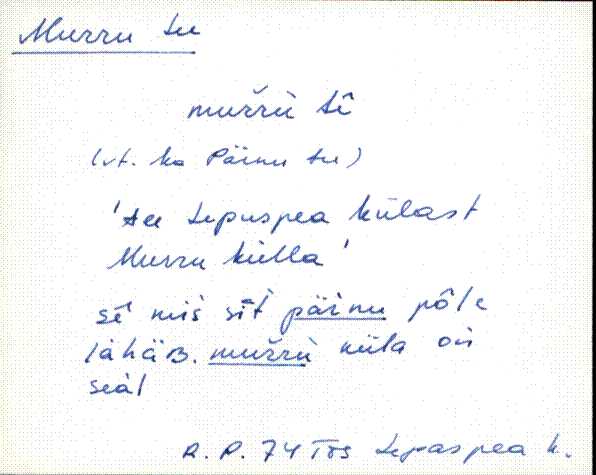 Murru tee
mur̆r̆ù tê
(vt. ka Päinu tee)
'tee Lepuspea külast
Murru külla'
sē miš sīt päinu pōle
lähäB. mur̆r̆ù küla on
seàl
R. P. 74 Tõs Lepaspea k.